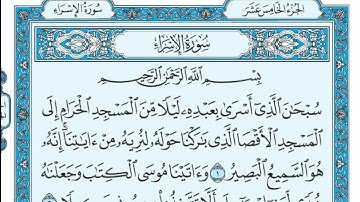 سُورَةُ الإِسْرَاءِ
الجُزْءُ الخَامِسَ عَشَرَ
سُورَةُ الإِسْرَاءِ
بِسْمِ اللَّهِ الرَّحْمَٰنِ الرَّحِيمِ
سُبْحَٰنَ ٱلَّذِىٓ أَسْرَىٰ بِعَبْدِهِۦ لَيْلًا مِّنَ ٱلْمَسْجِدِ ٱلْحَرَامِ إِلَى
ٱلْمَسْجِدِ ٱلْأَقْصَا ٱلَّذِى بَٰرَكْنَا حَوْلَهُۥ لِنُرِيَهُۥ مِنْ ءَايَٰتِنَآ إِنَّهُۥ
هُوَ ٱلسَّمِيعُ ٱلْبَصِيرُ ١ وَءَاتَيْنَا مُوسَى ٱلْكِتَٰبَ وَجَعَلْنَٰهُ